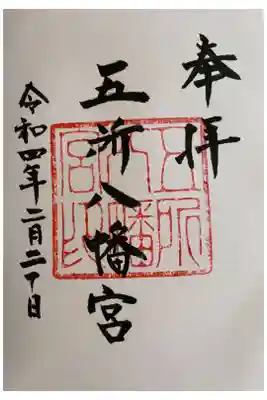 奉拝
五所八幡宮
五所
八幡
宮印
令和四年二月二十日